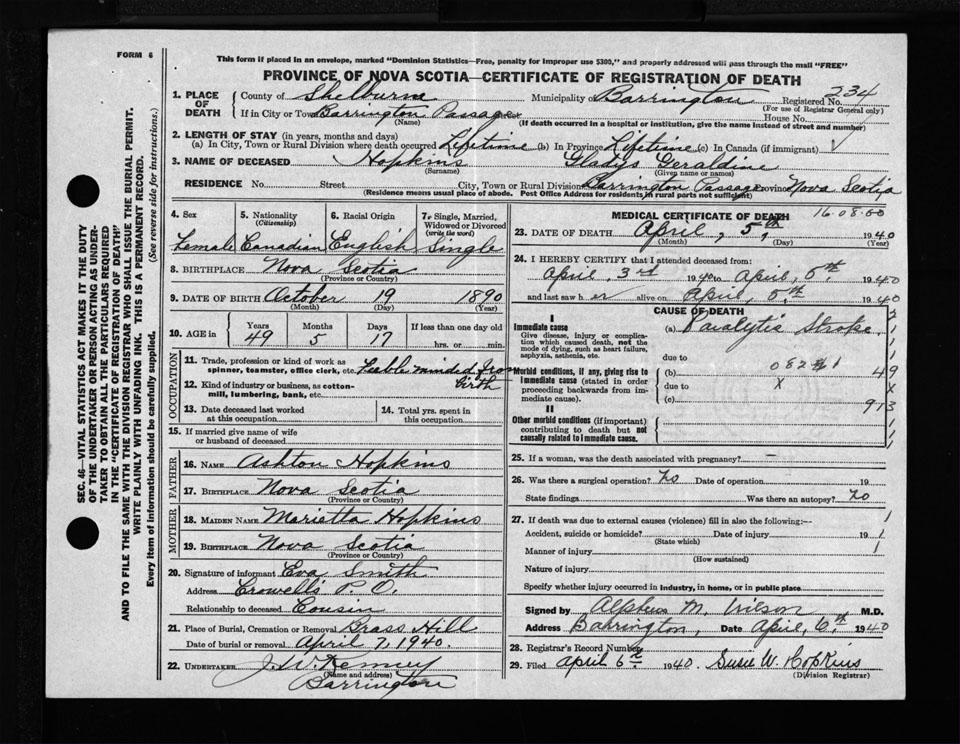 FORM 6
This form if placed in an envelope, marked "Dominion Statistics—Free, penalty for Improper use $300," and properly addressed will pass through the mail "FREE"
PROVINCE OF NOVA SCOTIA—CERTIFICATE OF REGISTRATION OF DEATH
234
1. PLACE OF DEATH County of Shelburne Municipality Barrington Registered No.
(For use of Registrar General only)
If in City or Town Barrington Passage House No.
(Name) (If death occurred in a hospital or institution, give the name instead of street and number)
2. LENGTH OF STAY (in years, months and days)
(a) In City, Town or Rural Division where death occurred Lifetime (b) In Province Lifetime (c) In Canada (if immigrant) √
3. NAME OF DECEASED Hopkins Gladys Geraldine
(Surname) (Given name or names)
RESIDENCE No. Street City, Town or Rural Division Barrington Passage Province Nova Scotia
(Residence means usual place of abode. Post Office Address for residents in rural parts not sufficient)
4. Sex 5. Nationality (Citizenship) 6. Racial Origin 7. Single, Married, Widowed or Divorced (write the word)
Female Canadian English Single
8. BIRTHPLACE Nova Scotia
(Province or Country)
9. DATE OF BIRTH October 19 1890
(Month) (Day) (Year)
10. AGE in Years Months Days If less than one day old
49 5 17 hrs. or min.
OCCUPATION
11. Trade, profession or kind of work as spinner, teamster, office clerk, etc. Feeble minded from Birth
12. Kind of industry or business, as cotton-mill, lumbering, bank, etc.
13. Date deceased last worked at this occupation 14. Total yrs. spent in this occupation
15. If married give name of wife or husband of deceased
FATHER
16. NAME Ashton Hopkins
17. BIRTHPLACE Nova Scotia
(Province or Country)
MOTHER
18. MAIDEN NAME Marietta Hopkins
19. BIRTHPLACE Nova Scotia
(Province or Country)
20. Signature of informant Eva Smith
Address Crowells P. O.
Relationship to deceased Cousin
21. Place of Burial, Cremation or Removal Brass Hill
Date of burial or removal April 7, 1940.
22. UNDERTAKER J. W. Kenney
(Name and address)
Barrington
MEDICAL CERTIFICATE OF DEATH 16.08.00
23. DATE OF DEATH April, 5th, 1940
(Month) (Day) (Year)
24. I HEREBY CERTIFY that I attended deceased from:
April, 3rd 1940 to April, 5th 1940
and last saw her alive on April, 5th 1940
CAUSE OF DEATH
I
Immediate cause (a) Paralytic Stroke
Give disease, injury or complication which caused death, not the mode of dying, such as heart failure, asphyxia, asthenia, etc.
due to
Morbid conditions, if any, giving rise to immediate cause (stated in order proceeding backwards from immediate cause).
(b) 49
due to X
(c) 913
II
Other morbid conditions (if important) contributing to death but not causally related to immediate cause.
25. If a woman, was the death associated with pregnancy? —
26. Was there a surgical operation? No Date of operation 19
State findings Was there an autopsy? No
27. If death was due to external causes (violence) fill in also the following:— 1
Accident, suicide or homicide? Date of injury 19 1
(State which)
Manner of injury 1
(How sustained)
Nature of injury
Specify whether injury occurred in industry, in home, or in public place
Signed by Alpheus M. Wilson M.D.
Address Barrington, Date April, 6th 1940
28. Registrar's Record Number
29. Filed April 6th 1940. Susie W. Hopkins
(Division Registrar)
SEC. 46—VITAL STATISTICS ACT MAKES IT THE DUTY
OF THE UNDERTAKER OR PERSON ACTING AS UNDER-
TAKER TO OBTAIN ALL THE PARTICULARS REQUIRED
IN THE "CERTIFICATE OF REGISTRATION OF DEATH"
AND TO FILE THE SAME WITH THE DIVISION REGISTRAR WHO SHALL ISSUE THE BURIAL PERMIT.
WRITE PLAINLY WITH UNFADING INK. THIS IS A PERMANENT RECORD.
Every item of information should be carefully supplied. (See reverse side for instructions.)